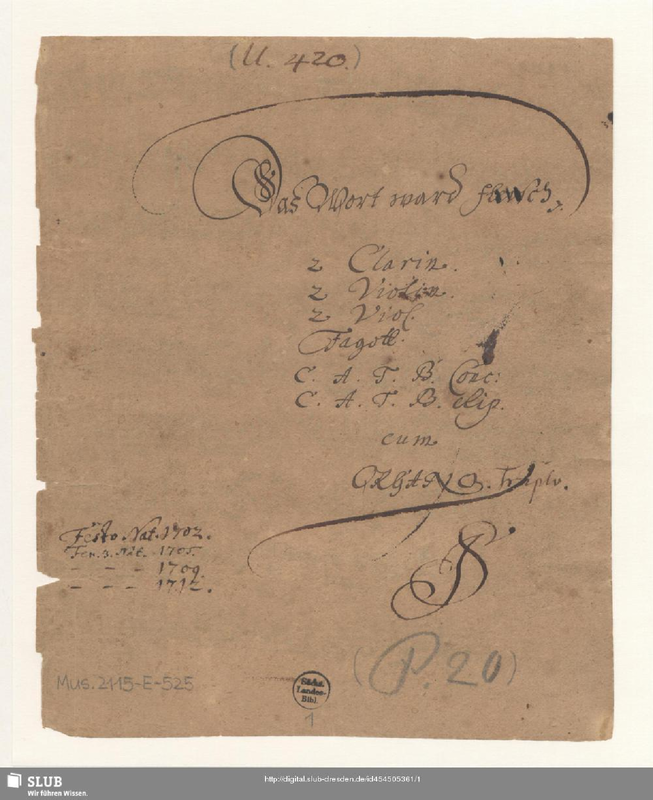 (U. 420.)
Das Wort ward fleisch,
2 Clarin.
2 Violin.
2 Viol.
Fagott.
C. A. T. B. Conc:
C. A. T. B. Rip.
cum
ORGANO. Triplv.
Festo Nat. 1702.
Fer. 3. Nat. 1705.
- - - 1709.
- - - 1712.
(P. 20)
Mus. 2115-E-525
Sächs.
Landes-
Bibl.
1
SLUB
Wir führen Wissen.
http://digital.slub-dresden.de/id454505361/1